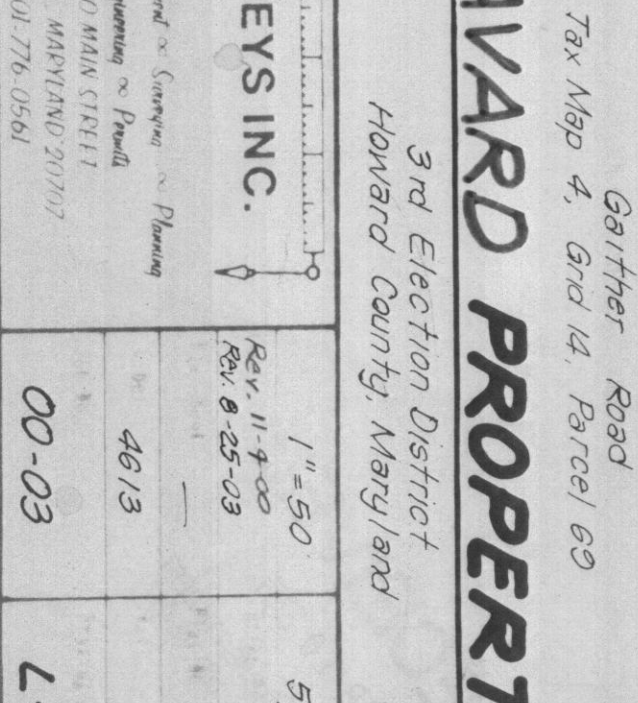 Gaither Road
Tax Map 4, Grid 14, Parcel 69
VARD PROPERT
3rd Election District
Howard County, Maryland
EYS INC.
Surveying ∝ Planning
∝ Permits
MAIN STREET
MARYLAND 20707
776.0561
1"=50'
Rev. 11-9-00
Rev. 8-25-03
—
4613
00-03
5
L